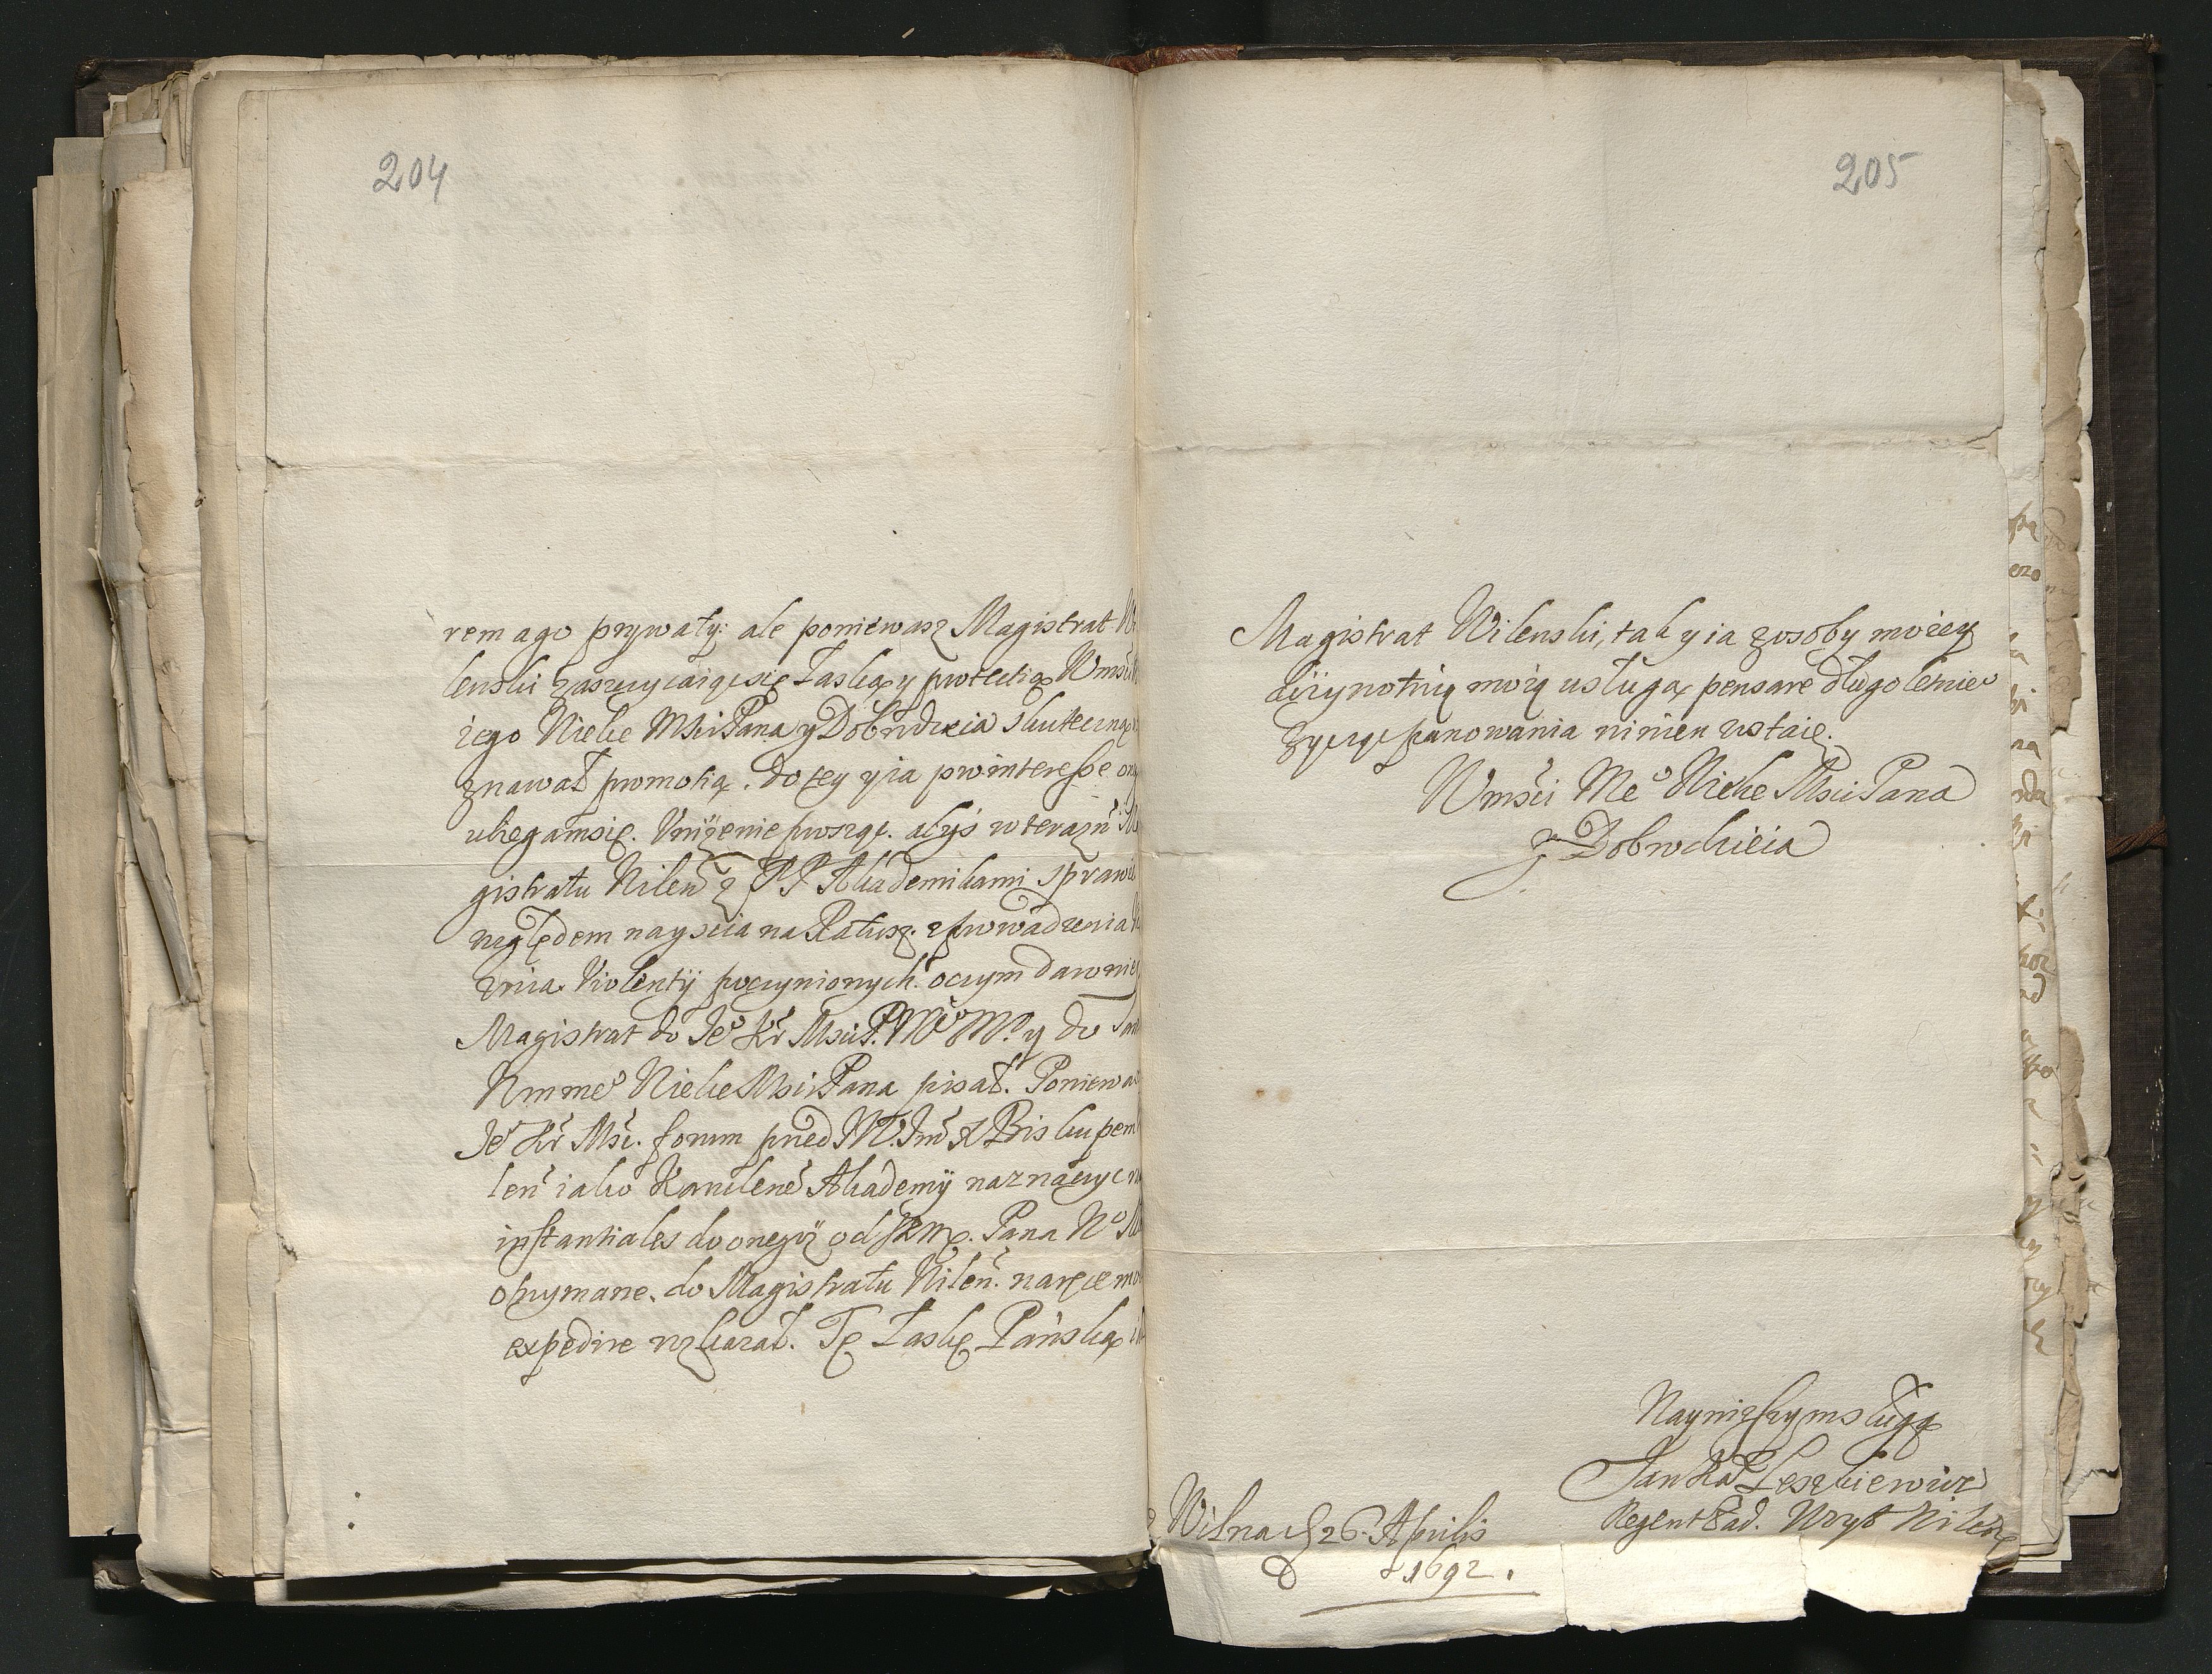 204
rem ago prywaty: ale poniewasz Magistrat Wi
lenski zaszczycaiąc się Łaską y protectią Wmści
iego Wielce Mści Pana y Dobrodzieia skuteczną
znawał promotią. Do tey y ia pro interesse
ubiegam się. Uniżenie proszę. abyś w terazń
gistratu Wileń z PP Akademikami sprawie
względem nayścia na Ratusz. z prowadzenia
Violentij poczynionych. o czym dawniey
Magistrat do Je° Kr Mści P. M° M° y do
Wmme° Wielce Mści Pana pisał. Poniewasz
Je° Kr Mść. forum przed Im X Biskupem
leń iako Akademij naznaczyć
instantiales do onegoż od Pana
otrzymane. do Magistratu Wileń. na ręce mo
expedire rozkazał. Tę Łaskę Pańską
205
Magistrat Wilenski, tak y ia z osoby moiey
dożywotnią moią usługą pensare długoletnie°
życząc panowania winien zostaię.
Wmści Me° Wielce Mści Pana
y Dobrodzieia
Nayniższym sługą
Jan Kaź Leszkiewicz
Regent Wileń
z Wilna d 26. Aprilis
1692.